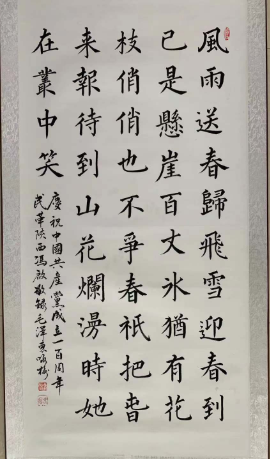 風雨送春歸飛雪迎春到
已是懸崖百丈冰猶有花
枝俏俏也不爭春祇把春
来報待到山花爛漫時她
在叢中笑
慶祝中國共産黨成立一百周年
民革陕西馮啟敬録毛澤東咏梅